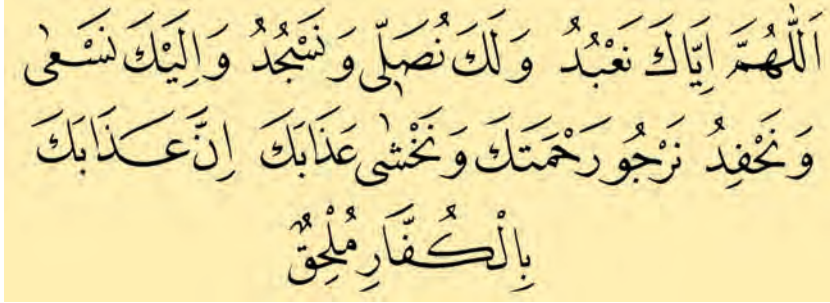 اَللّٰهُمَّ اِيَّاكَ نَعْبُدُ وَ لَكَ نُصَلّٖى وَ نَسْجُدُ وَ اِلَيْكَ نَسْعٰى
وَ نَحْفِدُ نَرْجُو رَحْمَتَكَ وَ نَخْشٰى عَذَابَكَ اِنَّ عَذَابَكَ
بِالْكُفَّارِ مُلْحِقٌ